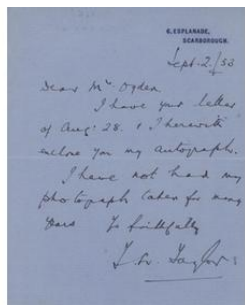 6, ESPLANADE,
SCARBOROUGH.
Sept. 2./53
Dear Mr. Ogden.
I have your letter
of Aug: 28. & I herewith
enclose you my autograph.
I have not had my
photograph taken for many
years Yrs faithfully